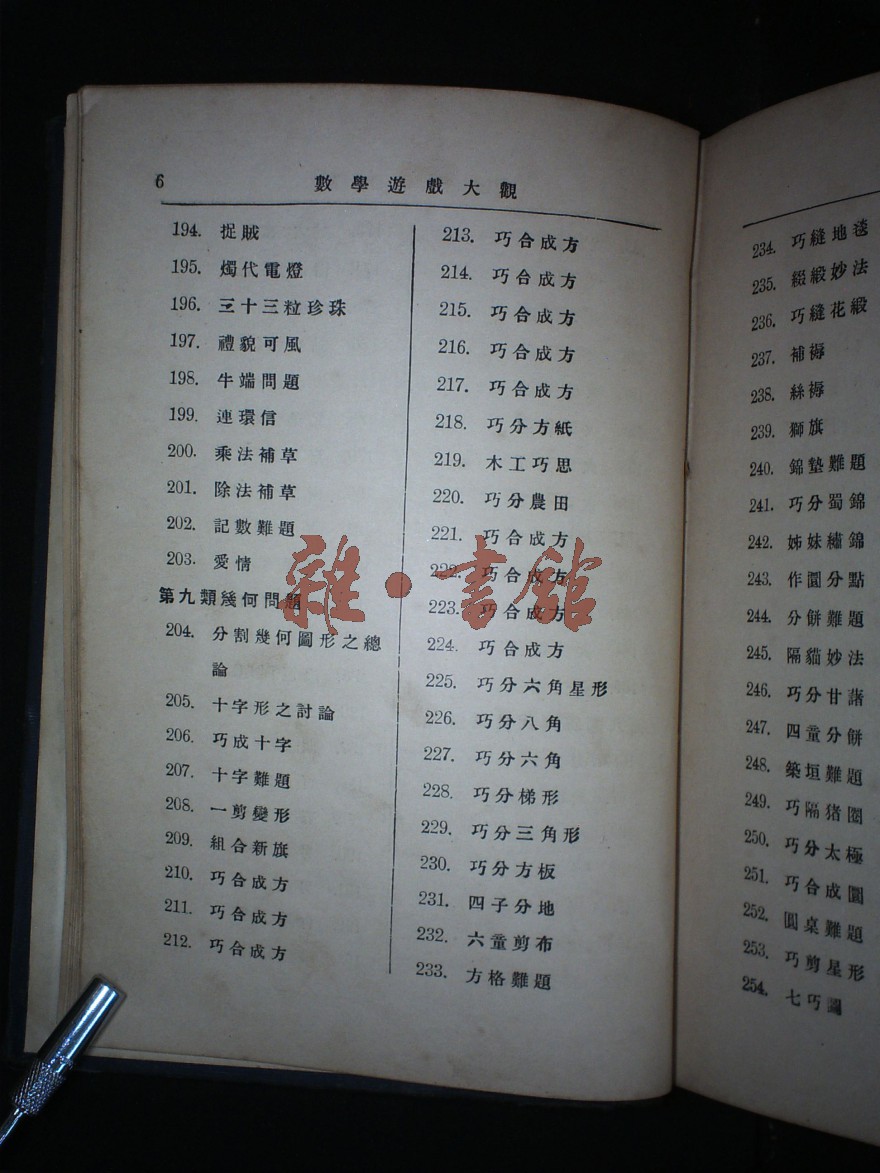 6 數學遊戲大觀
194. 捉賊
195. 燭代電燈
196. 三十三粒珍珠
197. 禮貌可風
198. 牛端問題
199. 連環信
200. 乘法補草
201. 除法補草
202. 記數難題
203. 愛情
第九類幾何問題
204. 分割幾何圖形之總
論
205. 十字形之討論
206. 巧成十字
207. 十字難題
208. 一剪變形
209. 組合新旗
210. 巧合成方
211. 巧合成方
212. 巧合成方
213. 巧合成方
214. 巧合成方
215. 巧合成方
216. 巧合成方
217. 巧合成方
218. 巧分方紙
219. 木工巧思
220. 巧分農田
221. 巧合成方
222. 巧合成方
223. 巧合成方
224. 巧合成方
225. 巧分六角星形
226. 巧分八角
227. 巧分六角
228. 巧分梯形
229. 巧分三角形
230. 巧分方板
231. 四子分地
232. 六童剪布
233. 方格難題
234. 巧縫地毯
235. 綴緞妙法
236. 巧縫花緞
237. 補褥
238. 絲褥
239. 獅旗
240. 錦墊難題
241. 巧分蜀錦
242. 姊妹繡錦
243. 作圓分點
244. 分餅難題
245. 隔貓妙法
246. 巧分甘藷
247. 四童分餅
248. 築垣難題
249. 巧隔猪圈
250. 巧分太極
251. 巧合成圓
252. 圓桌難題
253. 巧剪星形
254. 七巧圖
雜·書館